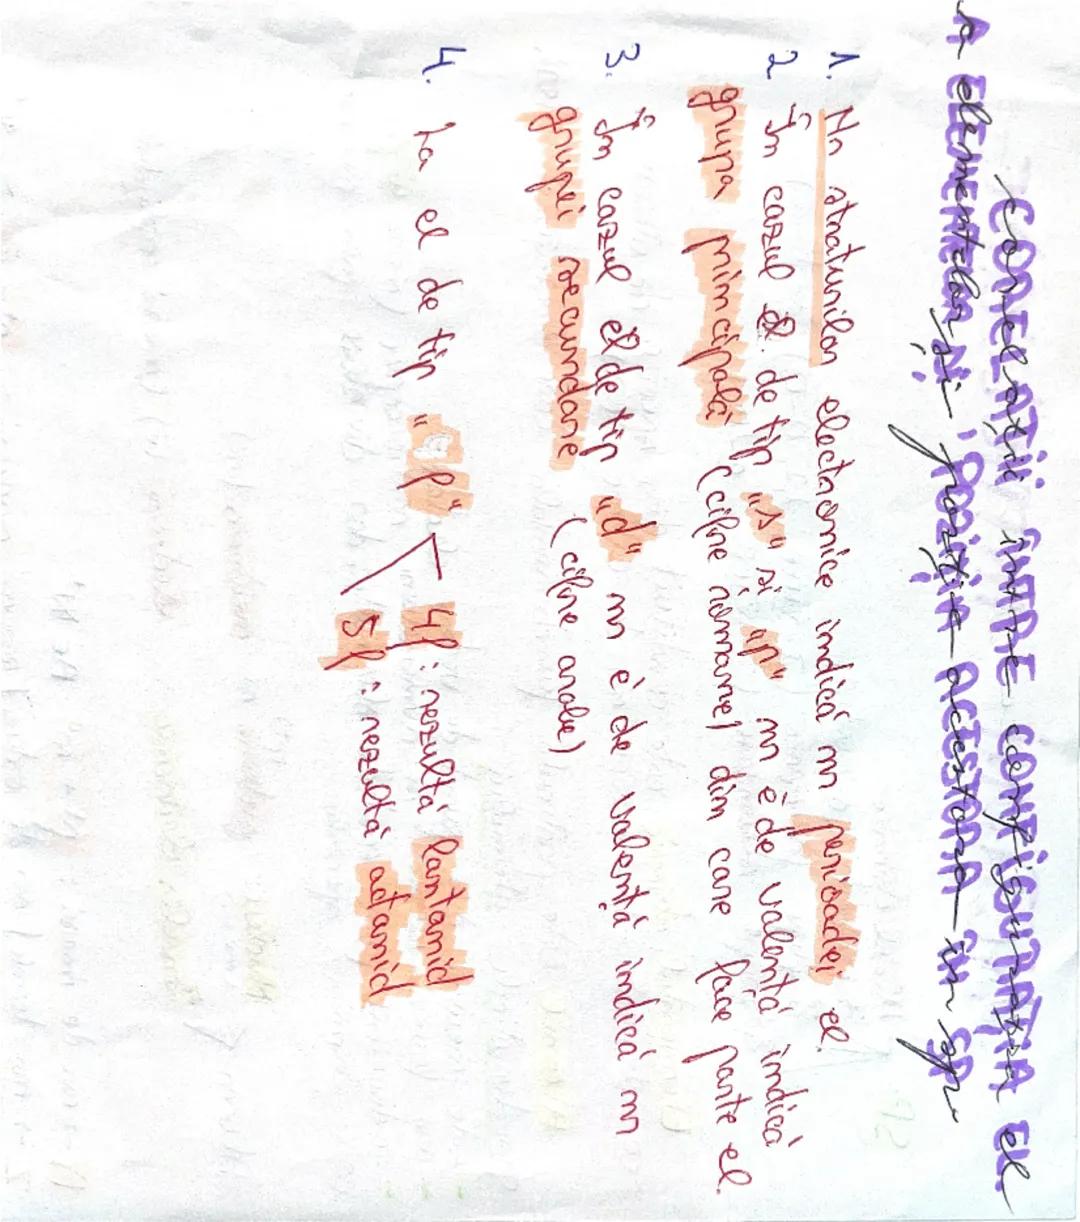 CORELAȚII ÎNTRE CONFIGURAȚIA EL.
A ELEMENTELOR ȘI POZIȚIA ACESTORA ÎN SP
1. Nr straturilor electronice indică nr perioadei el.
2. În cazul el. de tip "s" și "p" nr é de valență indică
grupa principală (cifre romane) din care face parte el.
3. În cazul el de tip "d" nr é de valență indică nr
grupei secundare (cifre arabe)
4. La el de tip "f"
4f : rezultă lantanid
5f : rezultă actinid